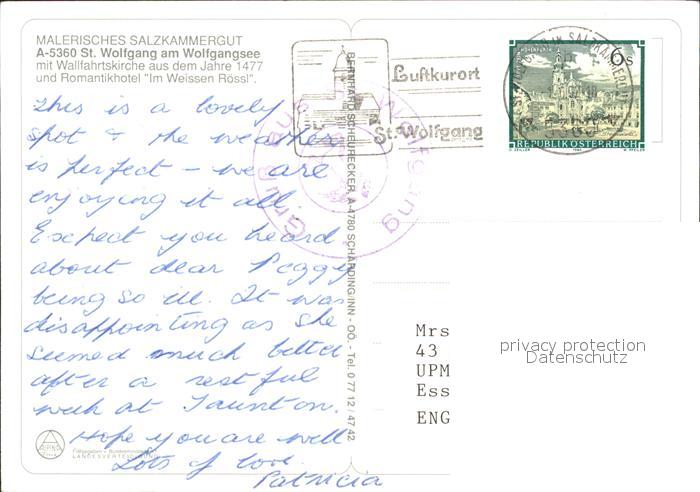 MALERISCHES SALZKAMMERGUT
A-5360 St. Wolfgang am Wolfgangsee
mit Wallfahrtskirche aus dem Jahre 1477
und Romantikhotel "Im Weissen Rössl".
This is a lovely
spot & the weather
is perfect - we are
enjoying it all.
Expect you heard
about dear Peggy
being so ill. It was
disappointing as she
seemed much better
after a restful
week at Taunton.
Hope you are well
Lots of love.
Patricia
ALPINA
LANDESVERTEIDIGUNG
BERNHARD SCHEURECKER, A-4780 SCHÄRDING/INN - OÖ. - Tel. 0 77 12 / 47 42
Luftkurort
St. Wolfgang
Gruß aus St. Wolfgang
6s
REPUBLIK ÖSTERREICH
O. ZEILLER 1984 W. PFEILER
IM SALZKAMMERGUT
5360
Mrs
43
UPM
Ess
ENG
privacy protection
Datenschutz